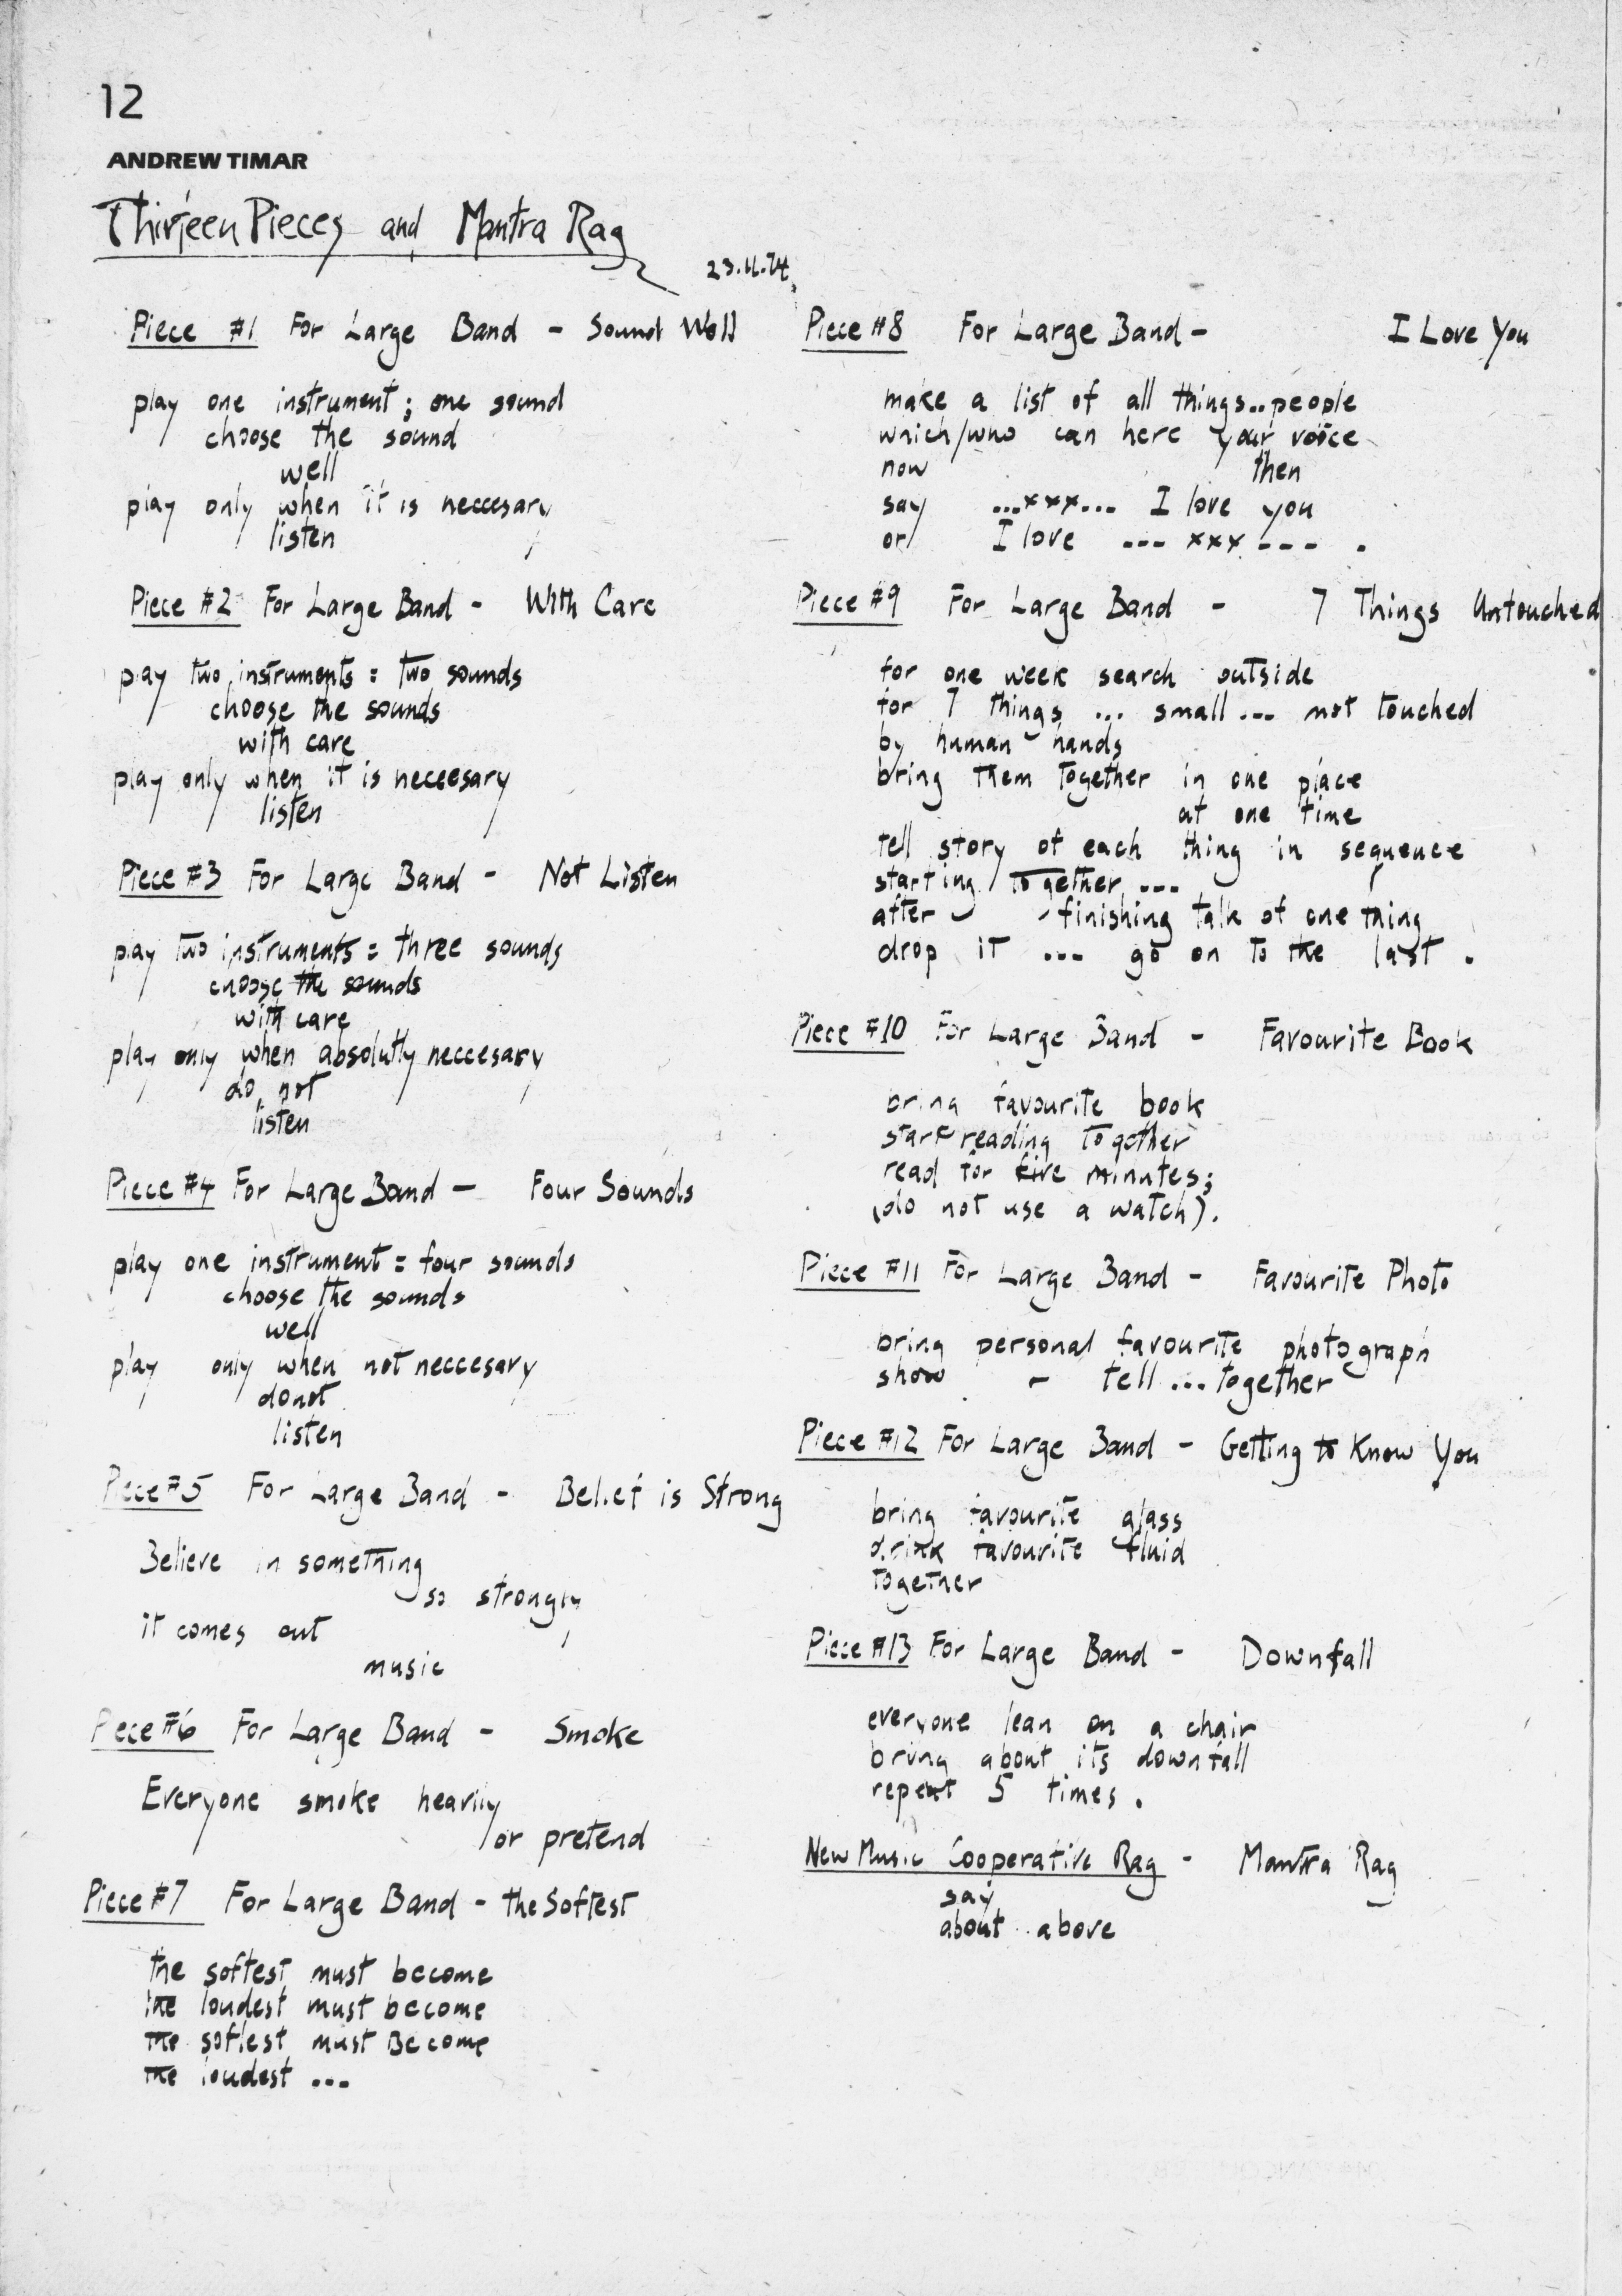 12
ANDREW TIMAR
Thirteen Pieces and Mantra Rag
23.11.74.
Piece #1 For Large Band - Sound Well
play one instrument; one sound
choose the sound
well
play only when it is neccesary
listen
Piece #2 For Large Band - With Care
play two instruments = two sounds
choose the sounds
with care
play only when it is neccesary
listen
Piece #3 For Large Band - Not Listen
play two instruments = three sounds
choose the sounds
with care
play only when absolutly neccesary
do not
listen
Piece #4 For Large Band - Four Sounds
play one instrument = four sounds
choose the sounds
well
play only when not neccesary
do not
listen
Piece #5 For Large Band - Belief is Strong
Believe in something
so strongly
it comes out
music
Piece #6 For Large Band - Smoke
Everyone smoke heavily
or pretend
Piece #7 For Large Band - the Softest
the softest must become
the loudest must become
the softest must Become
the loudest ...
Piece #8 For Large Band - I Love You
make a list of all things..people
which/who can here your voice
now then
say ...xxx... I love you
or I love --- xxx --- .
Piece #9 For Large Band - 7 Things Untouched
for one week search outside
for 7 things ... small ... not touched
by human hands
bring them together in one place
at one time
tell story of each thing in sequence
starting together ...
after finishing talk of one thing
drop it ... go on to the last .
Piece #10 For Large Band - Favourite Book
bring favourite book
start reading together
read for five minutes;
(do not use a watch).
Piece #11 For Large Band - Favourite Photo
bring personal favourite photograph
show - tell ... together
Piece #12 For Large Band - Getting to Know You
bring favourite glass
drink favourite fluid
together
Piece #13 For Large Band - Downfall
everyone lean on a chair
bring about its downfall
repeat 5 times .
New Music Cooperative Rag - Mantra Rag
say
about above